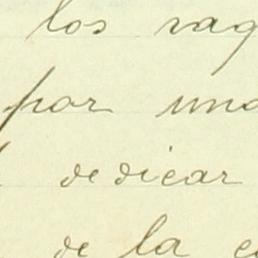 los vag
por una
dedicar
de la e